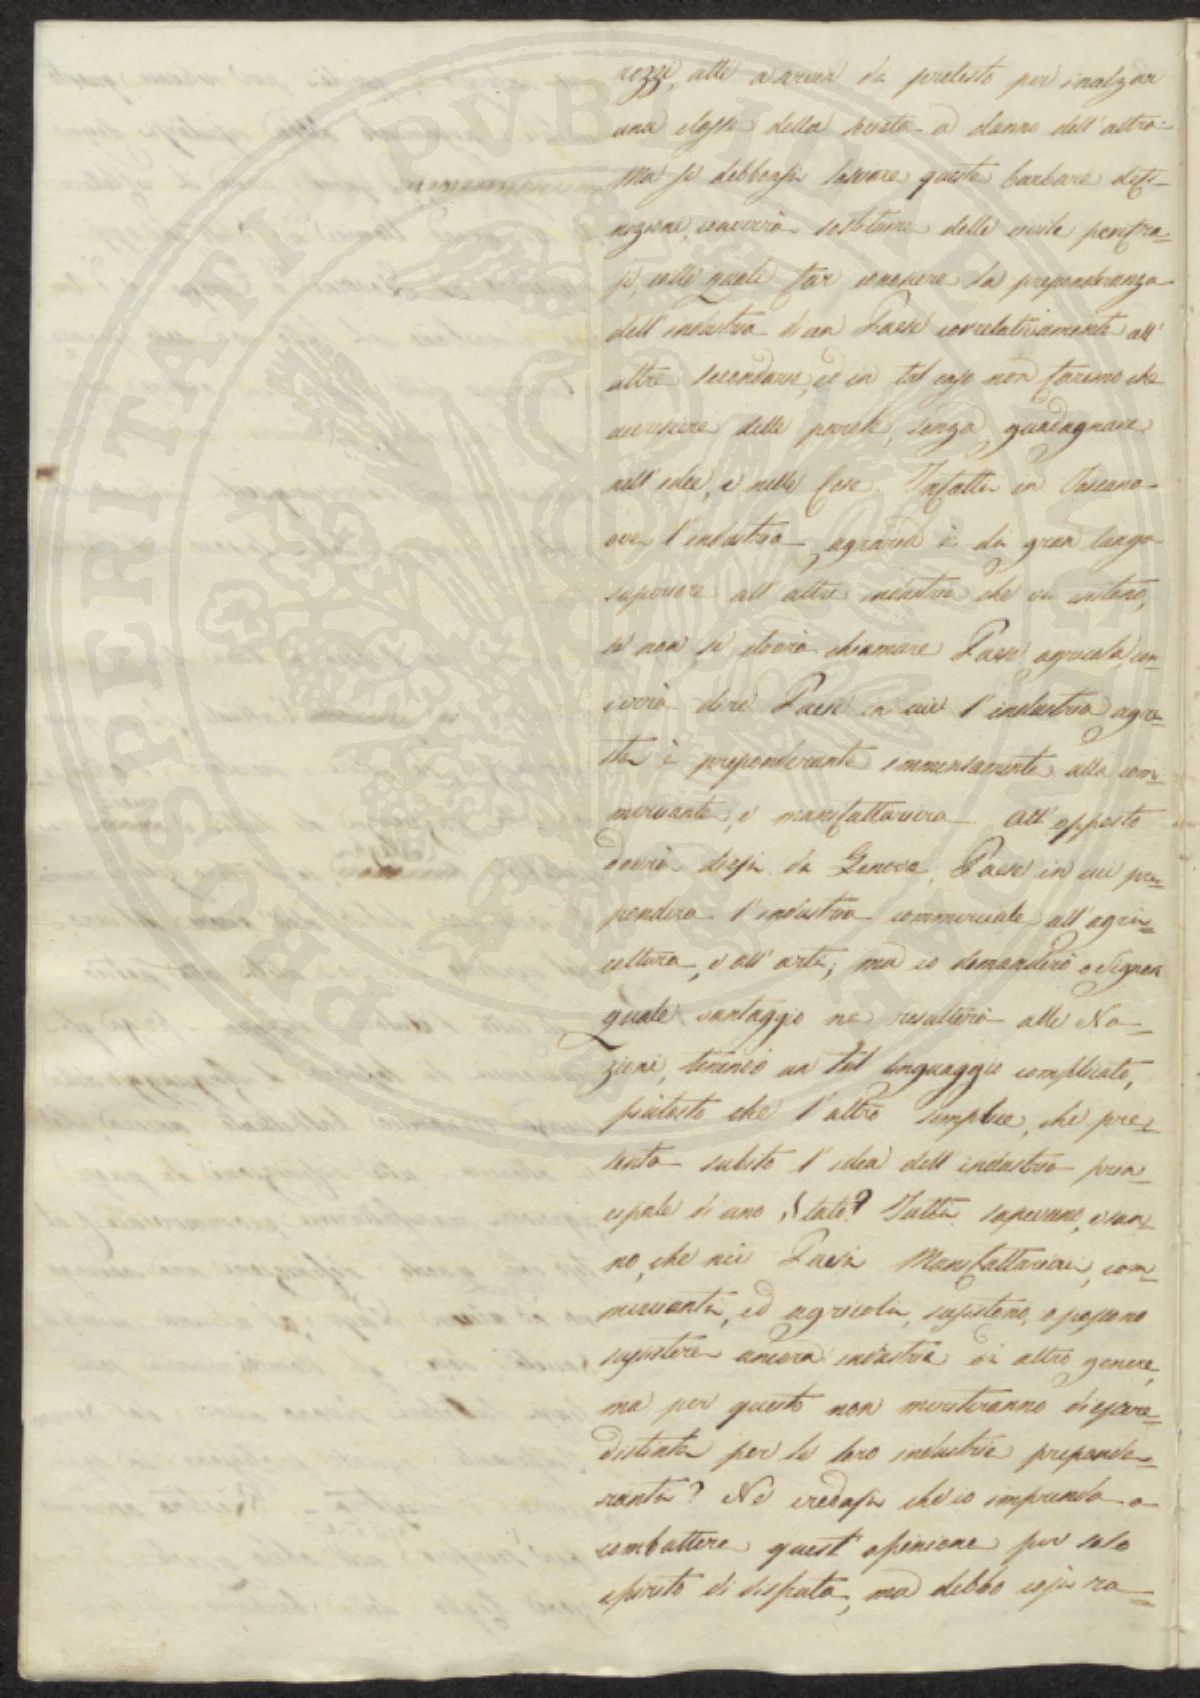 rezzi, atti a servir di pretesto per inalzar
una classe della società a danno dell'altra.
Ma se debbonsi lasciare queste barbare defi-
nizioni, converrà sostituire delle civili perifra-
si, colle quali far conoscere la preponderanza
dell'industria d'un Paese correlativamente all'
altre secondarie, ed in tal caso non faremo che
accrescere delle parole, senza guadagnare
nell'idee, e nelle cose. Infatti in Toscana
ove l'industria agraria è di gran lunga
superiore all'altre industrie che vi esistono,
se non si dovrà chiamare Paese agricola, con-
verrà dire Paese in cui l'industria agre-
ste è preponderante immensamente alla com-
merciante, e manifatturiera. All'opposto
dovrà dirsi di Genova, Paese in cui pre-
pondera l'industria commerciale all'agri-
coltura, e all'arti; ma io domanderò o Signori
quale vantaggio ne resulterà alle Na-
zioni, tenendo un tal linguaggio complicato,
piutosto che l'altro semplice, che pre-
senta subito l'idea dell'industria prin-
cipale di uno Stato? Tutti sapevano, e san-
no, che nei Paesi Manifatturieri, com-
mercianti, ed agricoli, sussistono, o possono
sussistere ancora industrie di altro genere,
ma per questo non meriteranno di essere
distinti per le loro industrie preponde-
ranti? Nè credasi che io imprenda a
combattere quest'opinione per solo
spirito di disputa, ma debbo così ra-
PROSPERITATI PVBLICAE